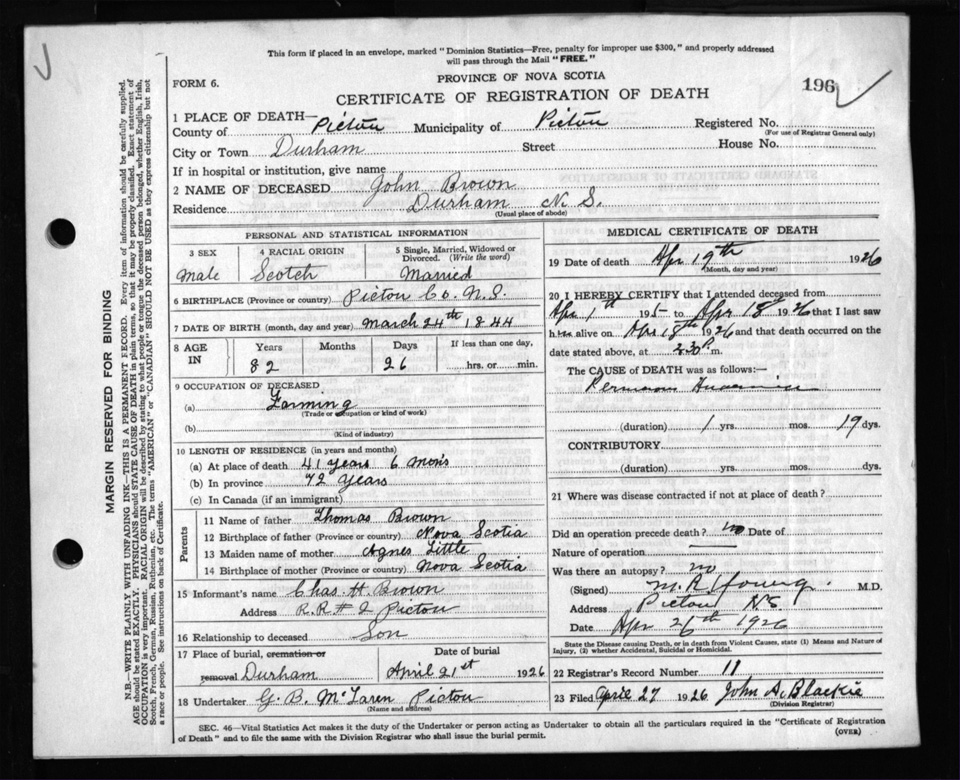 This form if placed in an envelope, marked "Dominion Statistics—Free, penalty for improper use $300," and properly addressed
will pass through the Mail "FREE."
PROVINCE OF NOVA SCOTIA
FORM 6.
196
CERTIFICATE OF REGISTRATION OF DEATH
1 PLACE OF DEATH—
County of Pictou Municipality of Pictou Registered No.
(For use of Registrar General only)
City or Town Durham Street House No.
If in hospital or institution, give name
2 NAME OF DECEASED John Brown
Residence Durham N. S.
(Usual place of abode)
PERSONAL AND STATISTICAL INFORMATION
3 SEX 4 RACIAL ORIGIN 5 Single, Married, Widowed or
Divorced. (Write the word)
Male Scotch Married
6 BIRTHPLACE (Province or country) Pictou Co. N.S.
7 DATE OF BIRTH (month, day and year) March 24th 1844
8 AGE IN Years Months Days If less than one day,
82 26 hrs. or min.
9 OCCUPATION OF DECEASED
(a) Farming
(Trade or occupation or kind of work)
(b)
(Kind of industry)
10 LENGTH OF RESIDENCE (in years and months)
(a) At place of death 41 years 6 mons
(b) In province 72 Years
(c) In Canada (if an immigrant)
Parents
11 Name of father Thomas Brown
12 Birthplace of father (Province or country) Nova Scotia
13 Maiden name of mother Agnes Little
14 Birthplace of mother (Province or country) Nova Scotia
15 Informant's name Chas. H. Brown
Address R.R # 2 Pictou
16 Relationship to deceased Son
17 Place of burial, cremation or Date of burial
removal Durham April 21st 1926
18 Undertaker G. B. McLaren Pictou
(Name and address)
MEDICAL CERTIFICATE OF DEATH
19 Date of death Apr 19th 1926
(Month, day and year)
20 I HEREBY CERTIFY that I attended deceased from
Apr 1st 1925 to Apr 18 1926 that I last saw
him alive on Apr 18th 1926 and that death occurred on the
date stated above, at 2.30 P. m.
The CAUSE of DEATH was as follows:—
(duration) 1 yrs. mos. 19 dys.
CONTRIBUTORY
(duration) yrs. mos. dys.
21 Where was disease contracted if not at place of death?
Did an operation precede death? no Date of
Nature of operation
Was there an autopsy? no
(Signed) M R Young M.D.
Address Pictou NS
Date Apr 26th 1926
State the Disease causing Death, or in death from Violent Causes, state (1) Means and Nature of
Injury, (2) whether Accidental, Suicidal or Homicidal.
22 Registrar's Record Number 11
23 Filed April 27 1926 John A. Blackie
(Division Registrar)
SEC. 46—Vital Statistics Act makes it the duty of the Undertaker or person acting as Undertaker to obtain all the particulars required in the "Certificate of Registration
of Death" and to file the same with the Division Registrar who shall issue the burial permit.
(OVER)
MARGIN RESERVED FOR BINDING
N.B.—WRITE PLAINLY WITH UNFADING INK—THIS IS A PERMANENT RECORD. Every item of information should be carefully supplied.
AGE should be stated EXACTLY. PHYSICIANS should STATE CAUSE OF DEATH in plain terms, so that it may be properly classified. Exact statement of
OCCUPATION is very important. RACIAL ORIGIN will be described by stating to what people or tongue the deceased person belonged, whether English, Irish,
Scotch, French, German, Russian, Ruthenian, etc. The terms "AMERICAN" or "CANADIAN" SHOULD NOT BE USED as they express citizenship but not
a race or people. See instructions on back of Certificate.